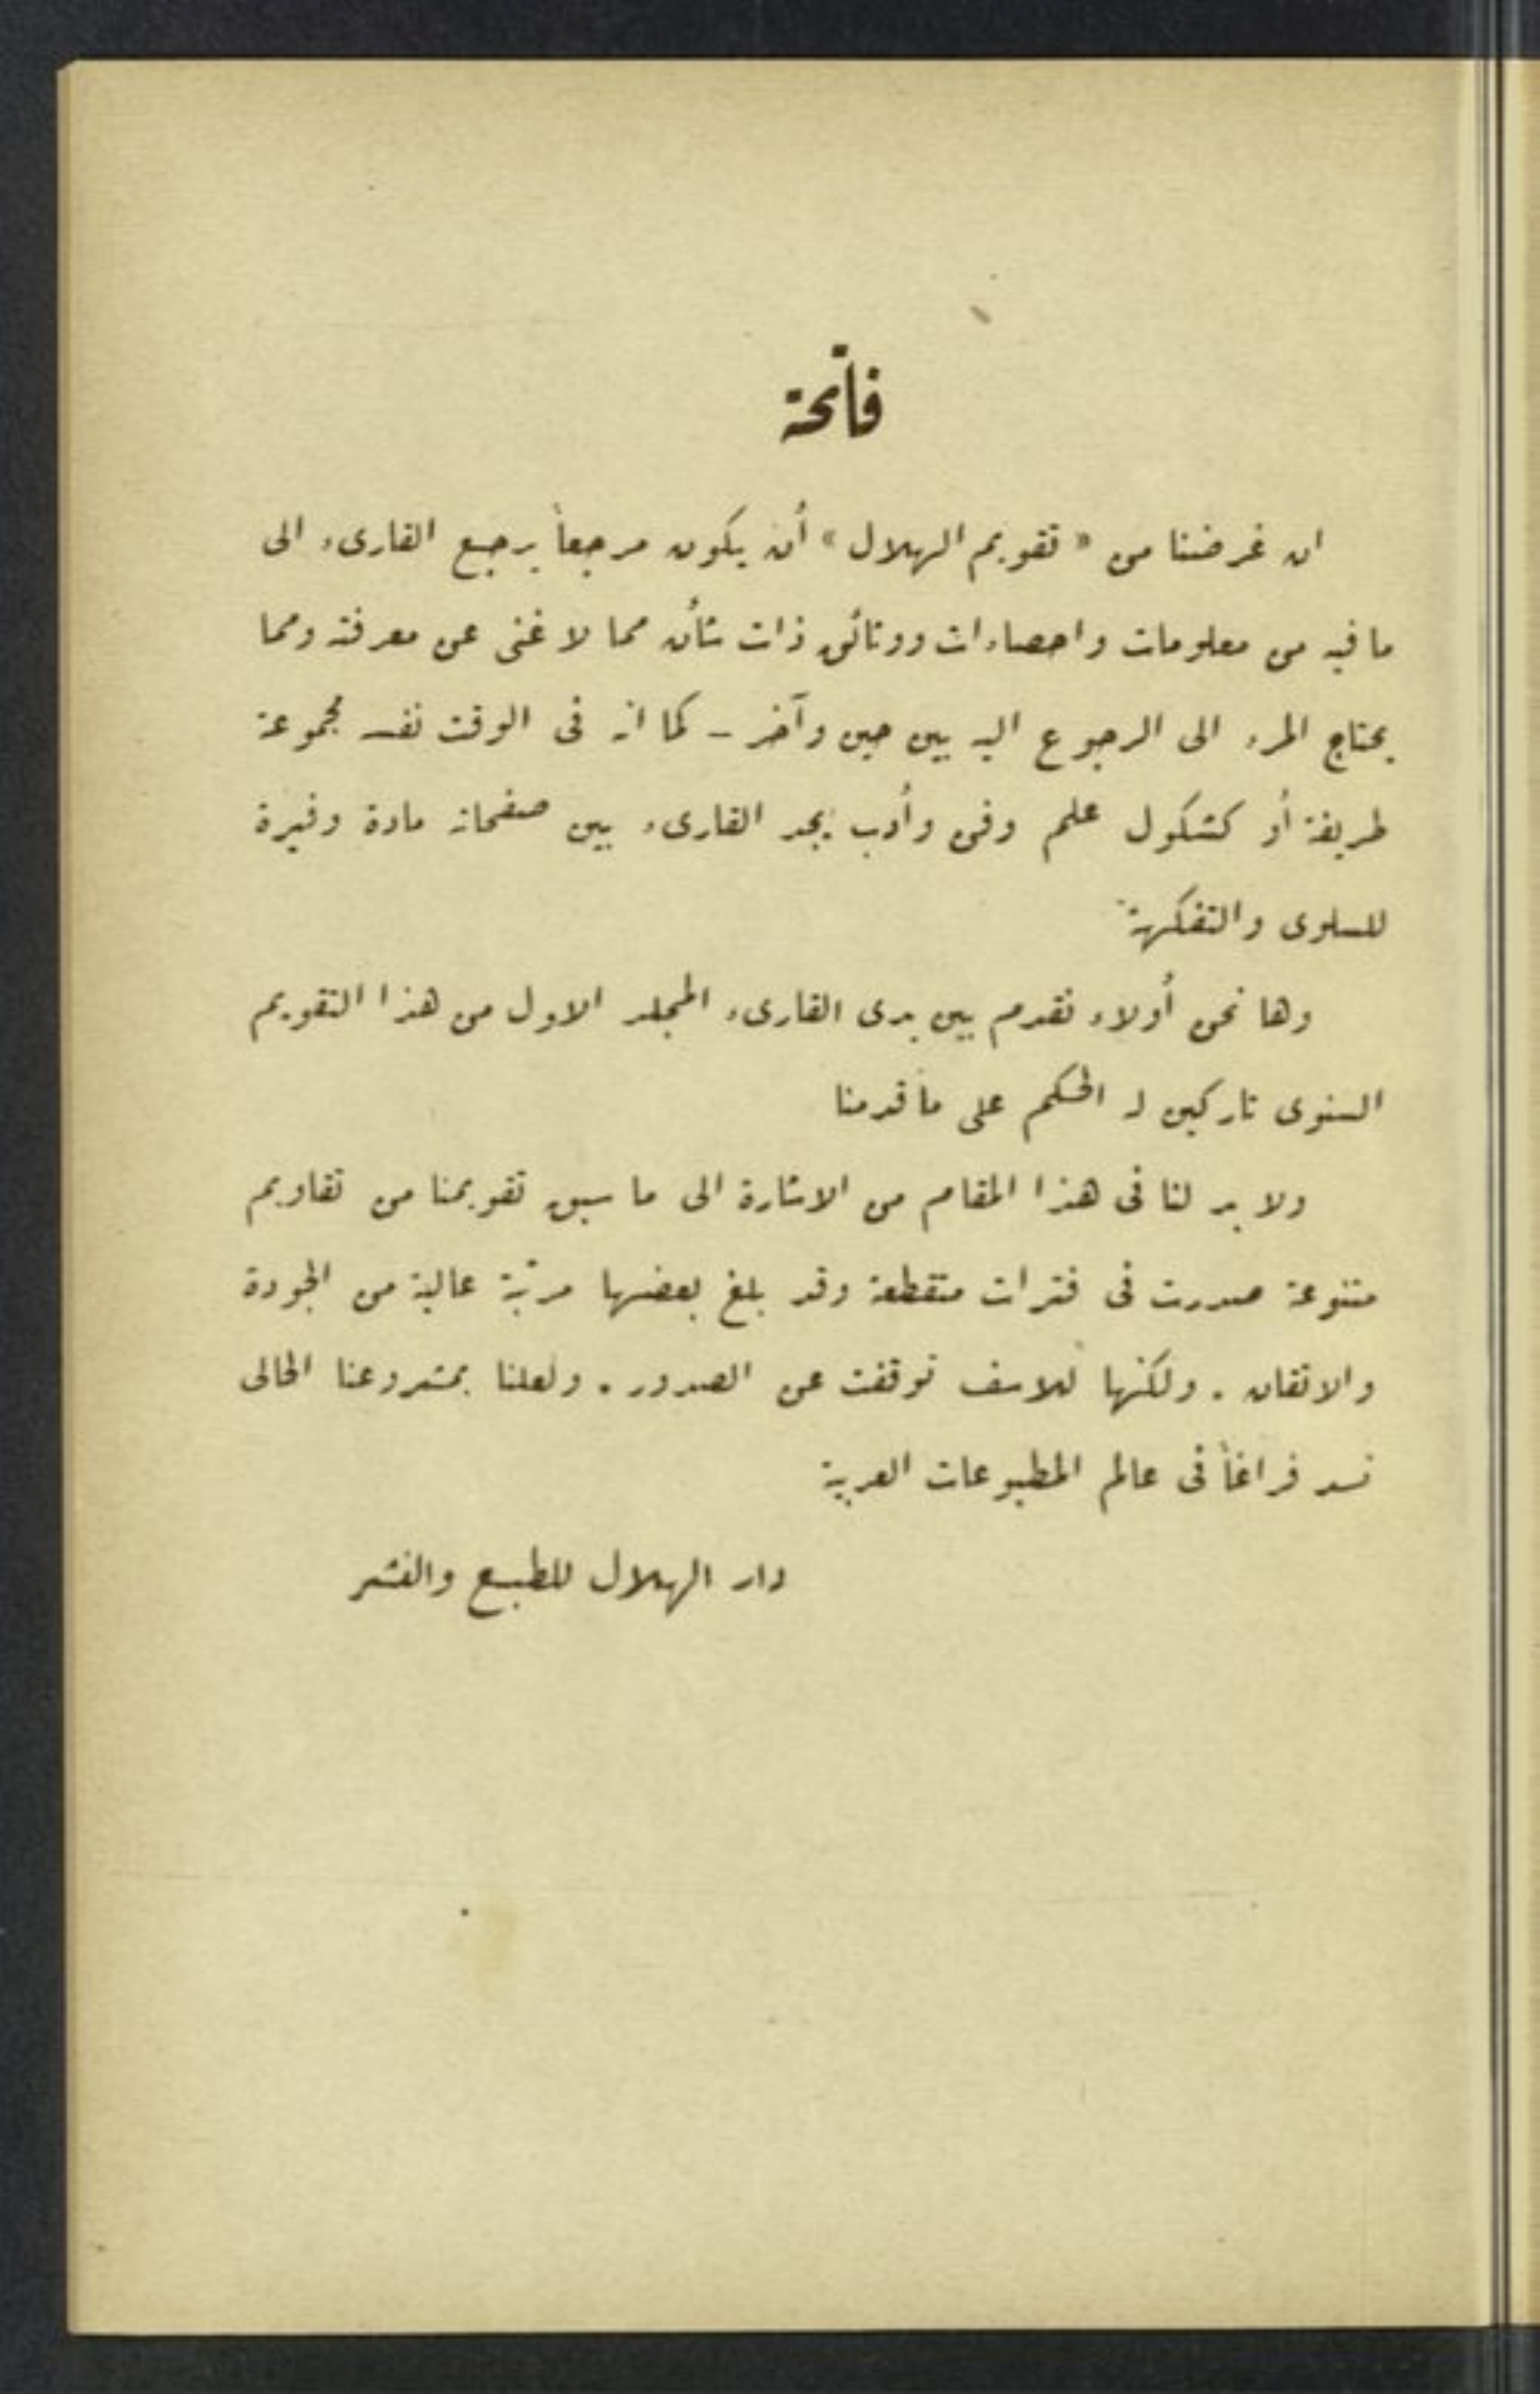 فاتحة
ان غرضنا من « تقويم الهلال » أن يكون مرجعاً يرجع القارىء الى
ما فيه من معلومات واحصاءات ووثائق ذات شأن مما لا غنى عن معرفته ومما
يحتاج المرء الى الرجوع اليه بين حين وآخر - كما انه فى الوقت نفسه مجموعة
طريفة أو كشكول علم وفن وأدب يجد القارىء بين صفحاته مادة وفيرة
للسلوى والتفكهة
وها نحن أولاء نقدم بين يدى القارىء المجلد الاول من هذا التقويم
السنوى تاركين له الحكم على ما قدمنا
ولا بد لنا فى هذا المقام من الاشارة الى ما سبق تقويمنا من تقاويم
متنوعة صدرت فى فترات متقطعة وقد بلغ بعضها مرتبة عالية من الجودة
والاتقان . ولكنها للاسف توقفت عن الصدور . ولعلنا بمشروعنا الحالى
نسد فراغاً فى عالم المطبوعات العربية
دار الهلال للطبع والنشر